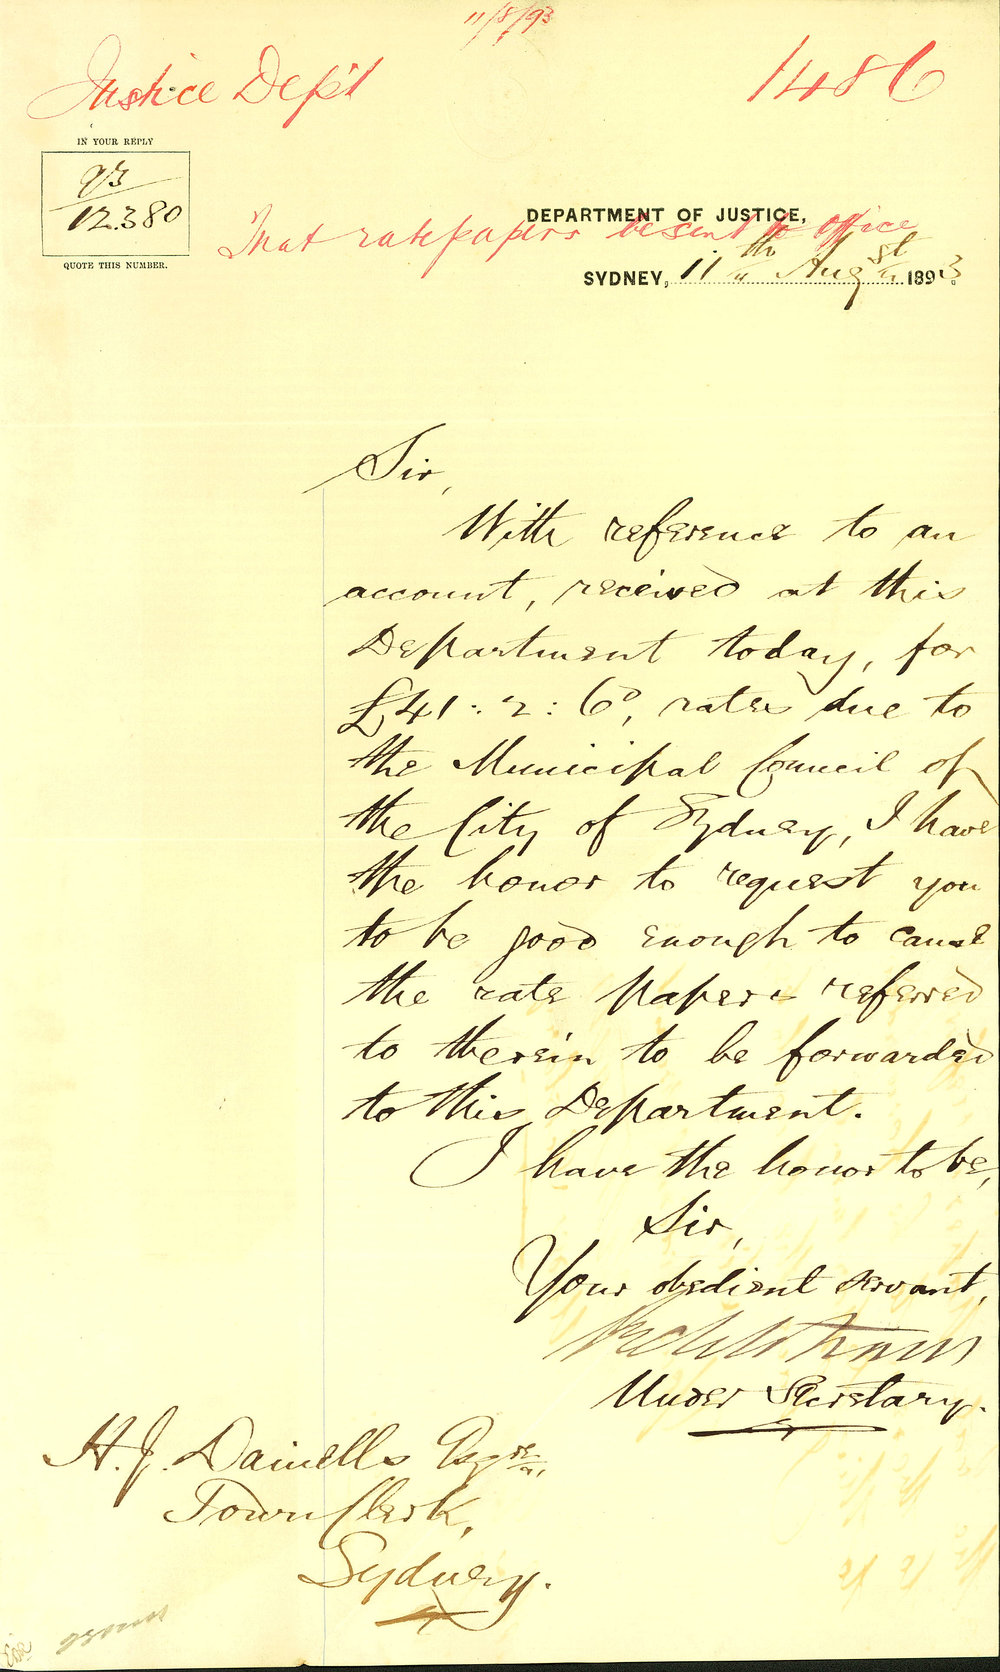 11/8/93
Justice Dep't
1486
IN YOUR REPLY
93
12.380
QUOTE THIS NUMBER.
That ratepapers be sent to office
DEPARTMENT OF JUSTICE,
SYDNEY, 11th Augst 1893.
Sir,
With reference to an
account, received at this
Department today, for
£41: 2: 6d, rates due to
the Municipal Council of
the City of Sydney, I have
the honor to request you
to be good enough to cause
the rate papers referred
to therein to be forwarded
to this Department.
I have the honor to be,
Sir,
Your obedient servant,
Under Secretary.
H. J. Daniells Esqre.
Town Clerk,
Sydney.